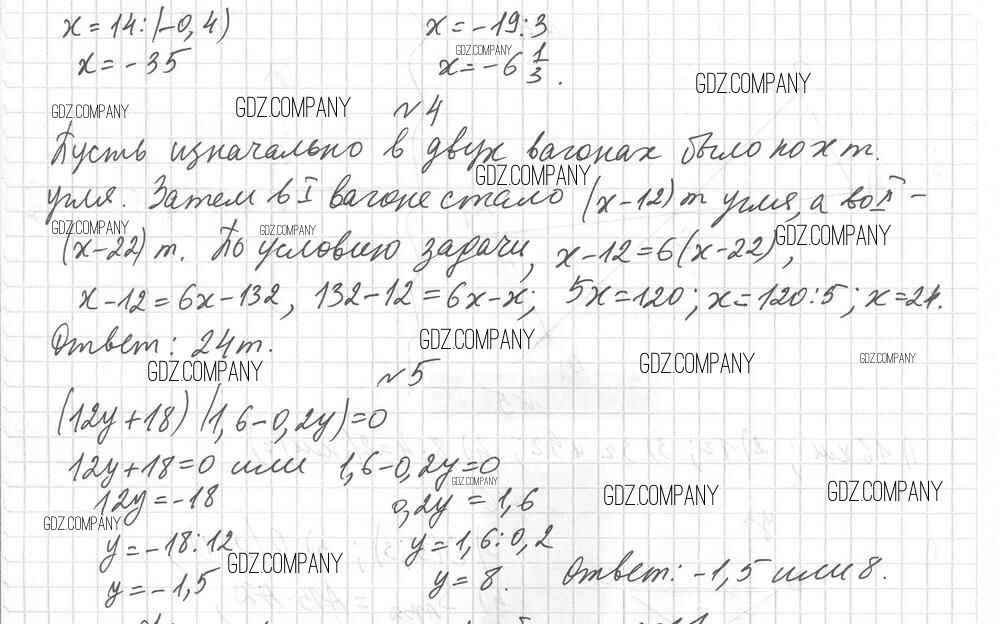 x = 14 : (-0,4)    x = -19 : 3
x = -35    x = -6 1/3.
GDZ.COMPANY
GDZ.COMPANY
GDZ.COMPANY GDZ.COMPANY
№4
Пусть изначально в двух вагонах было по x т.
GDZ.COMPANY
угля. Затем в I вагоне стало (x-12) т угля, а во II -
GDZ.COMPANY GDZ.COMPANY GDZ.COMPANY
(x-22) т. По условию задачи, x-12=6(x-22),
x-12=6x-132, 132-12=6x-x; 5x=120; x=120:5; x=24.
Ответ: 24 т.
GDZ.COMPANY
GDZ.COMPANY GDZ.COMPANY GDZ.COMPANY
№5
(12y+18) (1,6-0,2y)=0
12y+18=0 или 1,6-0,2y=0
GDZ.COMPANY
12y=-18    0,2y = 1,6
GDZ.COMPANY GDZ.COMPANY
GDZ.COMPANY
y=-18:12    y=1,6:0,2
GDZ.COMPANY
y=-1,5    y=8.    Ответ: -1,5 или 8.